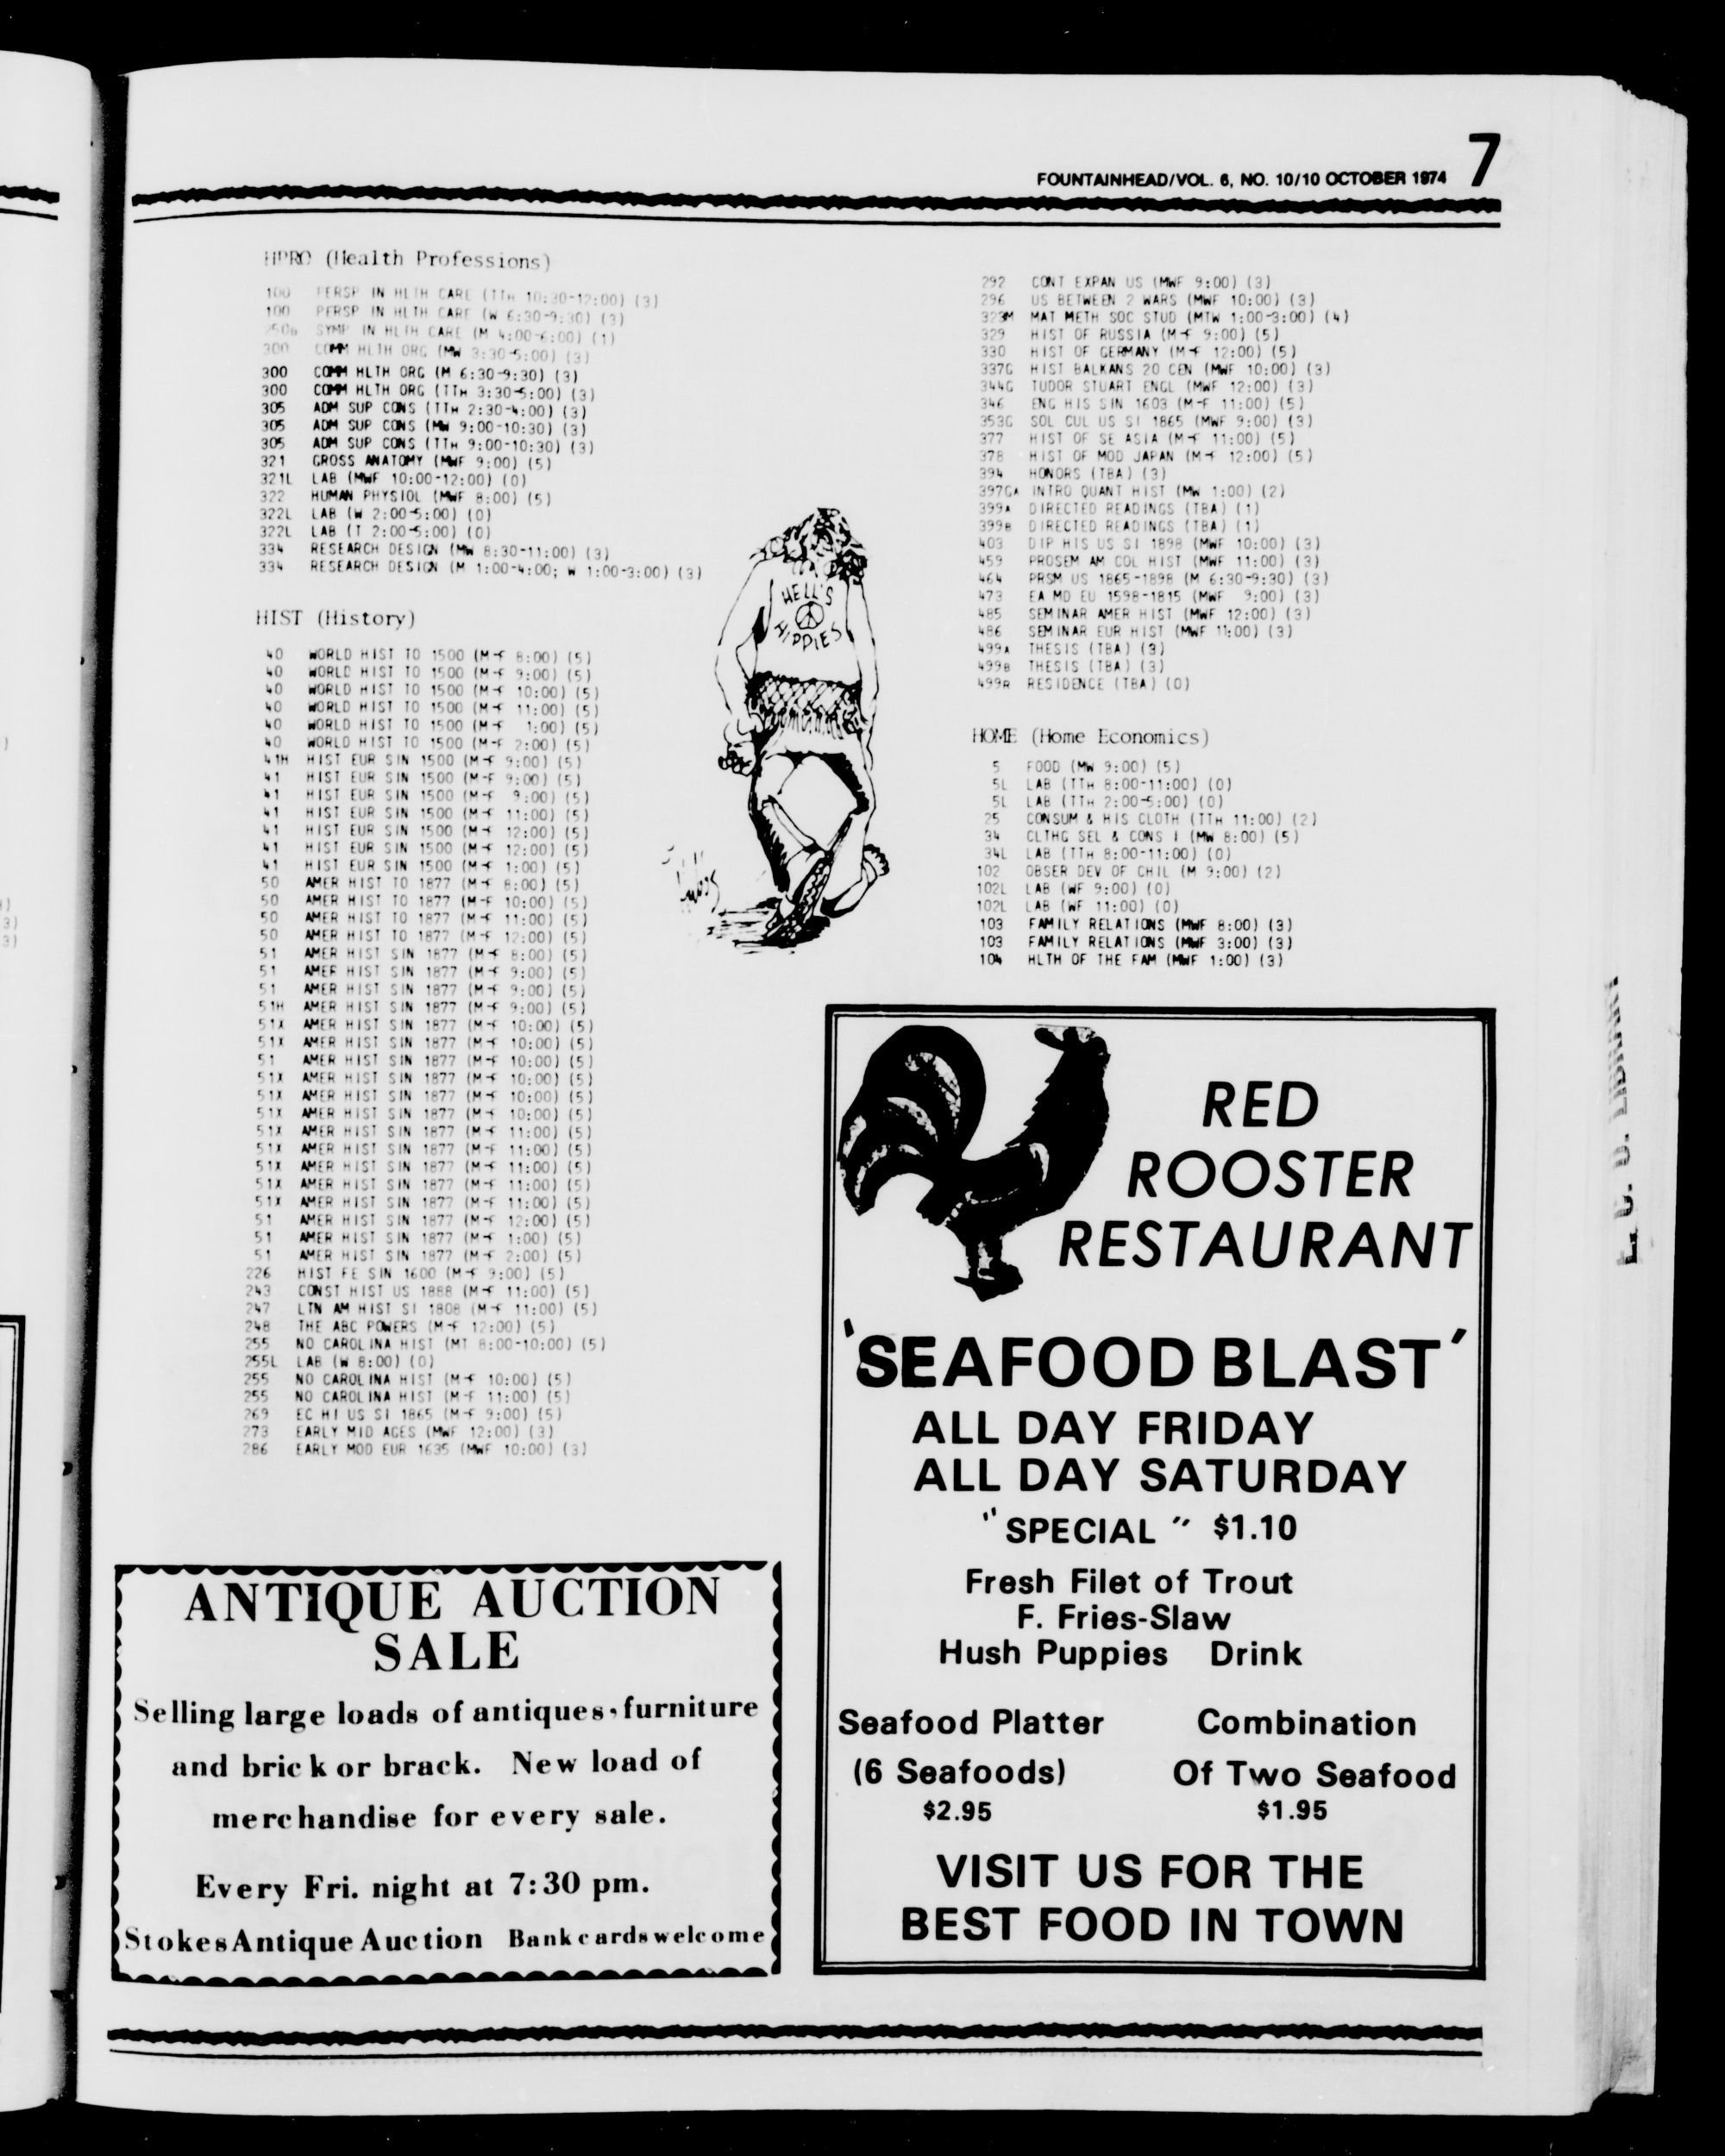 FOUNTAINHEAD/VOL. 6, NO. 10/10 OCTOBER 1974 7
HPRO (Health Professions)
100 PERSP IN HLTH CARE (TTH 10:30-12:00) (3)
100 PERSP IN HLTH CARE (W 6:30-9:30) (3)
250B SYMP IN HLTH CARE (M 4:00-6:00) (1)
300 COMM HLTH ORG (MW 3:30-5:00) (3)
300 COMM HLTH ORG (M 6:30-9:30) (3)
300 COMM HLTH ORG (TTH 3:30-5:00) (3)
305 ADM SUP CONS (TTH 2:30-4:00) (3)
305 ADM SUP CONS (MW 9:00-10:30) (3)
305 ADM SUP CONS (TTH 9:00-10:30) (3)
321 GROSS ANATOMY (MWF 9:00) (5)
321L LAB (MWF 10:00-12:00) (0)
322 HUMAN PHYSIOL (MWF 8:00) (5)
322L LAB (W 2:00-5:00) (0)
322L LAB (T 2:00-5:00) (0)
334 RESEARCH DESIGN (MW 8:30-11:00) (3)
334 RESEARCH DESIGN (M 1:00-4:00; W 1:00-3:00) (3)
HIST (History)
40 WORLD HIST TO 1500 (M-F 8:00) (5)
40 WORLD HIST TO 1500 (M-F 9:00) (5)
40 WORLD HIST TO 1500 (M-F 10:00) (5)
40 WORLD HIST TO 1500 (M-F 11:00) (5)
40 WORLD HIST TO 1500 (M-F 1:00) (5)
40 WORLD HIST TO 1500 (M-F 2:00) (5)
41H HIST EUR SIN 1500 (M-F 9:00) (5)
41 HIST EUR SIN 1500 (M-F 9:00) (5)
41 HIST EUR SIN 1500 (M-F 9:00) (5)
41 HIST EUR SIN 1500 (M-F 11:00) (5)
41 HIST EUR SIN 1500 (M-F 12:00) (5)
41 HIST EUR SIN 1500 (M-F 12:00) (5)
41 HIST EUR SIN 1500 (M-F 1:00) (5)
50 AMER HIST TO 1877 (M-F 8:00) (5)
50 AMER HIST TO 1877 (M-F 10:00) (5)
50 AMER HIST TO 1877 (M-F 11:00) (5)
50 AMER HIST TO 1877 (M-F 12:00) (5)
51 AMER HIST SIN 1877 (M-F 8:00) (5)
51 AMER HIST SIN 1877 (M-F 9:00) (5)
51 AMER HIST SIN 1877 (M-F 9:00) (5)
51H AMER HIST SIN 1877 (M-F 9:00) (5)
51X AMER HIST SIN 1877 (M-F 10:00) (5)
51X AMER HIST SIN 1877 (M-F 10:00) (5)
51 AMER HIST SIN 1877 (M-F 10:00) (5)
51X AMER HIST SIN 1877 (M-F 10:00) (5)
51X AMER HIST SIN 1877 (M-F 10:00) (5)
51X AMER HIST SIN 1877 (M-F 10:00) (5)
51X AMER HIST SIN 1877 (M-F 11:00) (5)
51X AMER HIST SIN 1877 (M-F 11:00) (5)
51X AMER HIST SIN 1877 (M-F 11:00) (5)
51X AMER HIST SIN 1877 (M-F 11:00) (5)
51X AMER HIST SIN 1877 (M-F 11:00) (5)
51 AMER HIST SIN 1877 (M-F 12:00) (5)
51 AMER HIST SIN 1877 (M-F 1:00) (5)
51 AMER HIST SIN 1877 (M-F 2:00) (5)
226 HIST FE SIN 1600 (M-F 9:00) (5)
243 CONST HIST US 1888 (M-F 11:00) (5)
247 LTN AM HIST SI 1808 (M-F 11:00) (5)
248 THE ABC POWERS (M-F 12:00) (5)
255 NO CAROLINA HIST (MT 8:00-10:00) (5)
255L LAB (W 8:00) (0)
255 NO CAROLINA HIST (M-F 10:00) (5)
255 NO CAROLINA HIST (M-F 11:00) (5)
269 EC HI US SI 1865 (M-F 9:00) (5)
273 EARLY MID AGES (MWF 12:00) (3)
286 EARLY MOD EUR 1635 (MWF 10:00) (3)
HELL'S
HIPPIES
292 CONT EXPAN US (MWF 9:00) (3)
296 US BETWEEN 2 WARS (MWF 10:00) (3)
323M MAT METH SOC STUD (MTW 1:00-3:00) (4)
329 HIST OF RUSSIA (M-F 9:00) (5)
330 HIST OF GERMANY (M-F 12:00) (5)
337G HIST BALKANS 20 CEN (MWF 10:00) (3)
344G TUDOR STUART ENGL (MWF 12:00) (3)
346 ENG HIS SIN 1603 (M-F 11:00) (5)
353G SOL CUL US SI 1865 (MWF 9:00) (3)
377 HIST OF SE ASIA (M-F 11:00) (5)
378 HIST OF MOD JAPAN (M-F 12:00) (5)
394 HONORS (TBA) (3)
397GA INTRO QUANT HIST (MW 1:00) (2)
399A DIRECTED READINGS (TBA) (1)
399B DIRECTED READINGS (TBA) (1)
403 DIP HIS US SI 1898 (MWF 10:00) (3)
459 PROSEM AM COL HIST (MWF 11:00) (3)
464 PRSM US 1865-1898 (M 6:30-9:30) (3)
473 EA MD EU 1598-1815 (MWF 9:00) (3)
485 SEMINAR AMER HIST (MWF 12:00) (3)
486 SEMINAR EUR HIST (MWF 11:00) (3)
499A THESIS (TBA) (3)
499B THESIS (TBA) (3)
499R RESIDENCE (TBA) (0)
HOME (Home Economics)
5 FOOD (MW 9:00) (5)
5L LAB (TTH 8:00-11:00) (0)
5L LAB (TTH 2:00-5:00) (0)
25 CONSUM & HIS CLOTH (TTH 11:00) (2)
34 CLTHG SEL & CONS I (MW 8:00) (5)
34L LAB (TTH 8:00-11:00) (0)
102 OBSER DEV OF CHIL (M 9:00) (2)
102L LAB (WF 9:00) (0)
102L LAB (WF 11:00) (0)
103 FAMILY RELATIONS (MWF 8:00) (3)
103 FAMILY RELATIONS (MWF 3:00) (3)
104 HLTH OF THE FAM (MWF 1:00) (3)
ANTIQUE AUCTION
SALE
Selling large loads of antiques, furniture
and brick or brack. New load of
merchandise for every sale.
Every Fri. night at 7:30 pm.
Stokes Antique Auction Bankcards welcome
RED
ROOSTER
RESTAURANT
'SEAFOOD BLAST'
ALL DAY FRIDAY
ALL DAY SATURDAY
"SPECIAL" $1.10
Fresh Filet of Trout
F. Fries-Slaw
Hush Puppies Drink
Seafood Platter
(6 Seafoods)
$2.95
Combination
Of Two Seafood
$1.95
VISIT US FOR THE
BEST FOOD IN TOWN